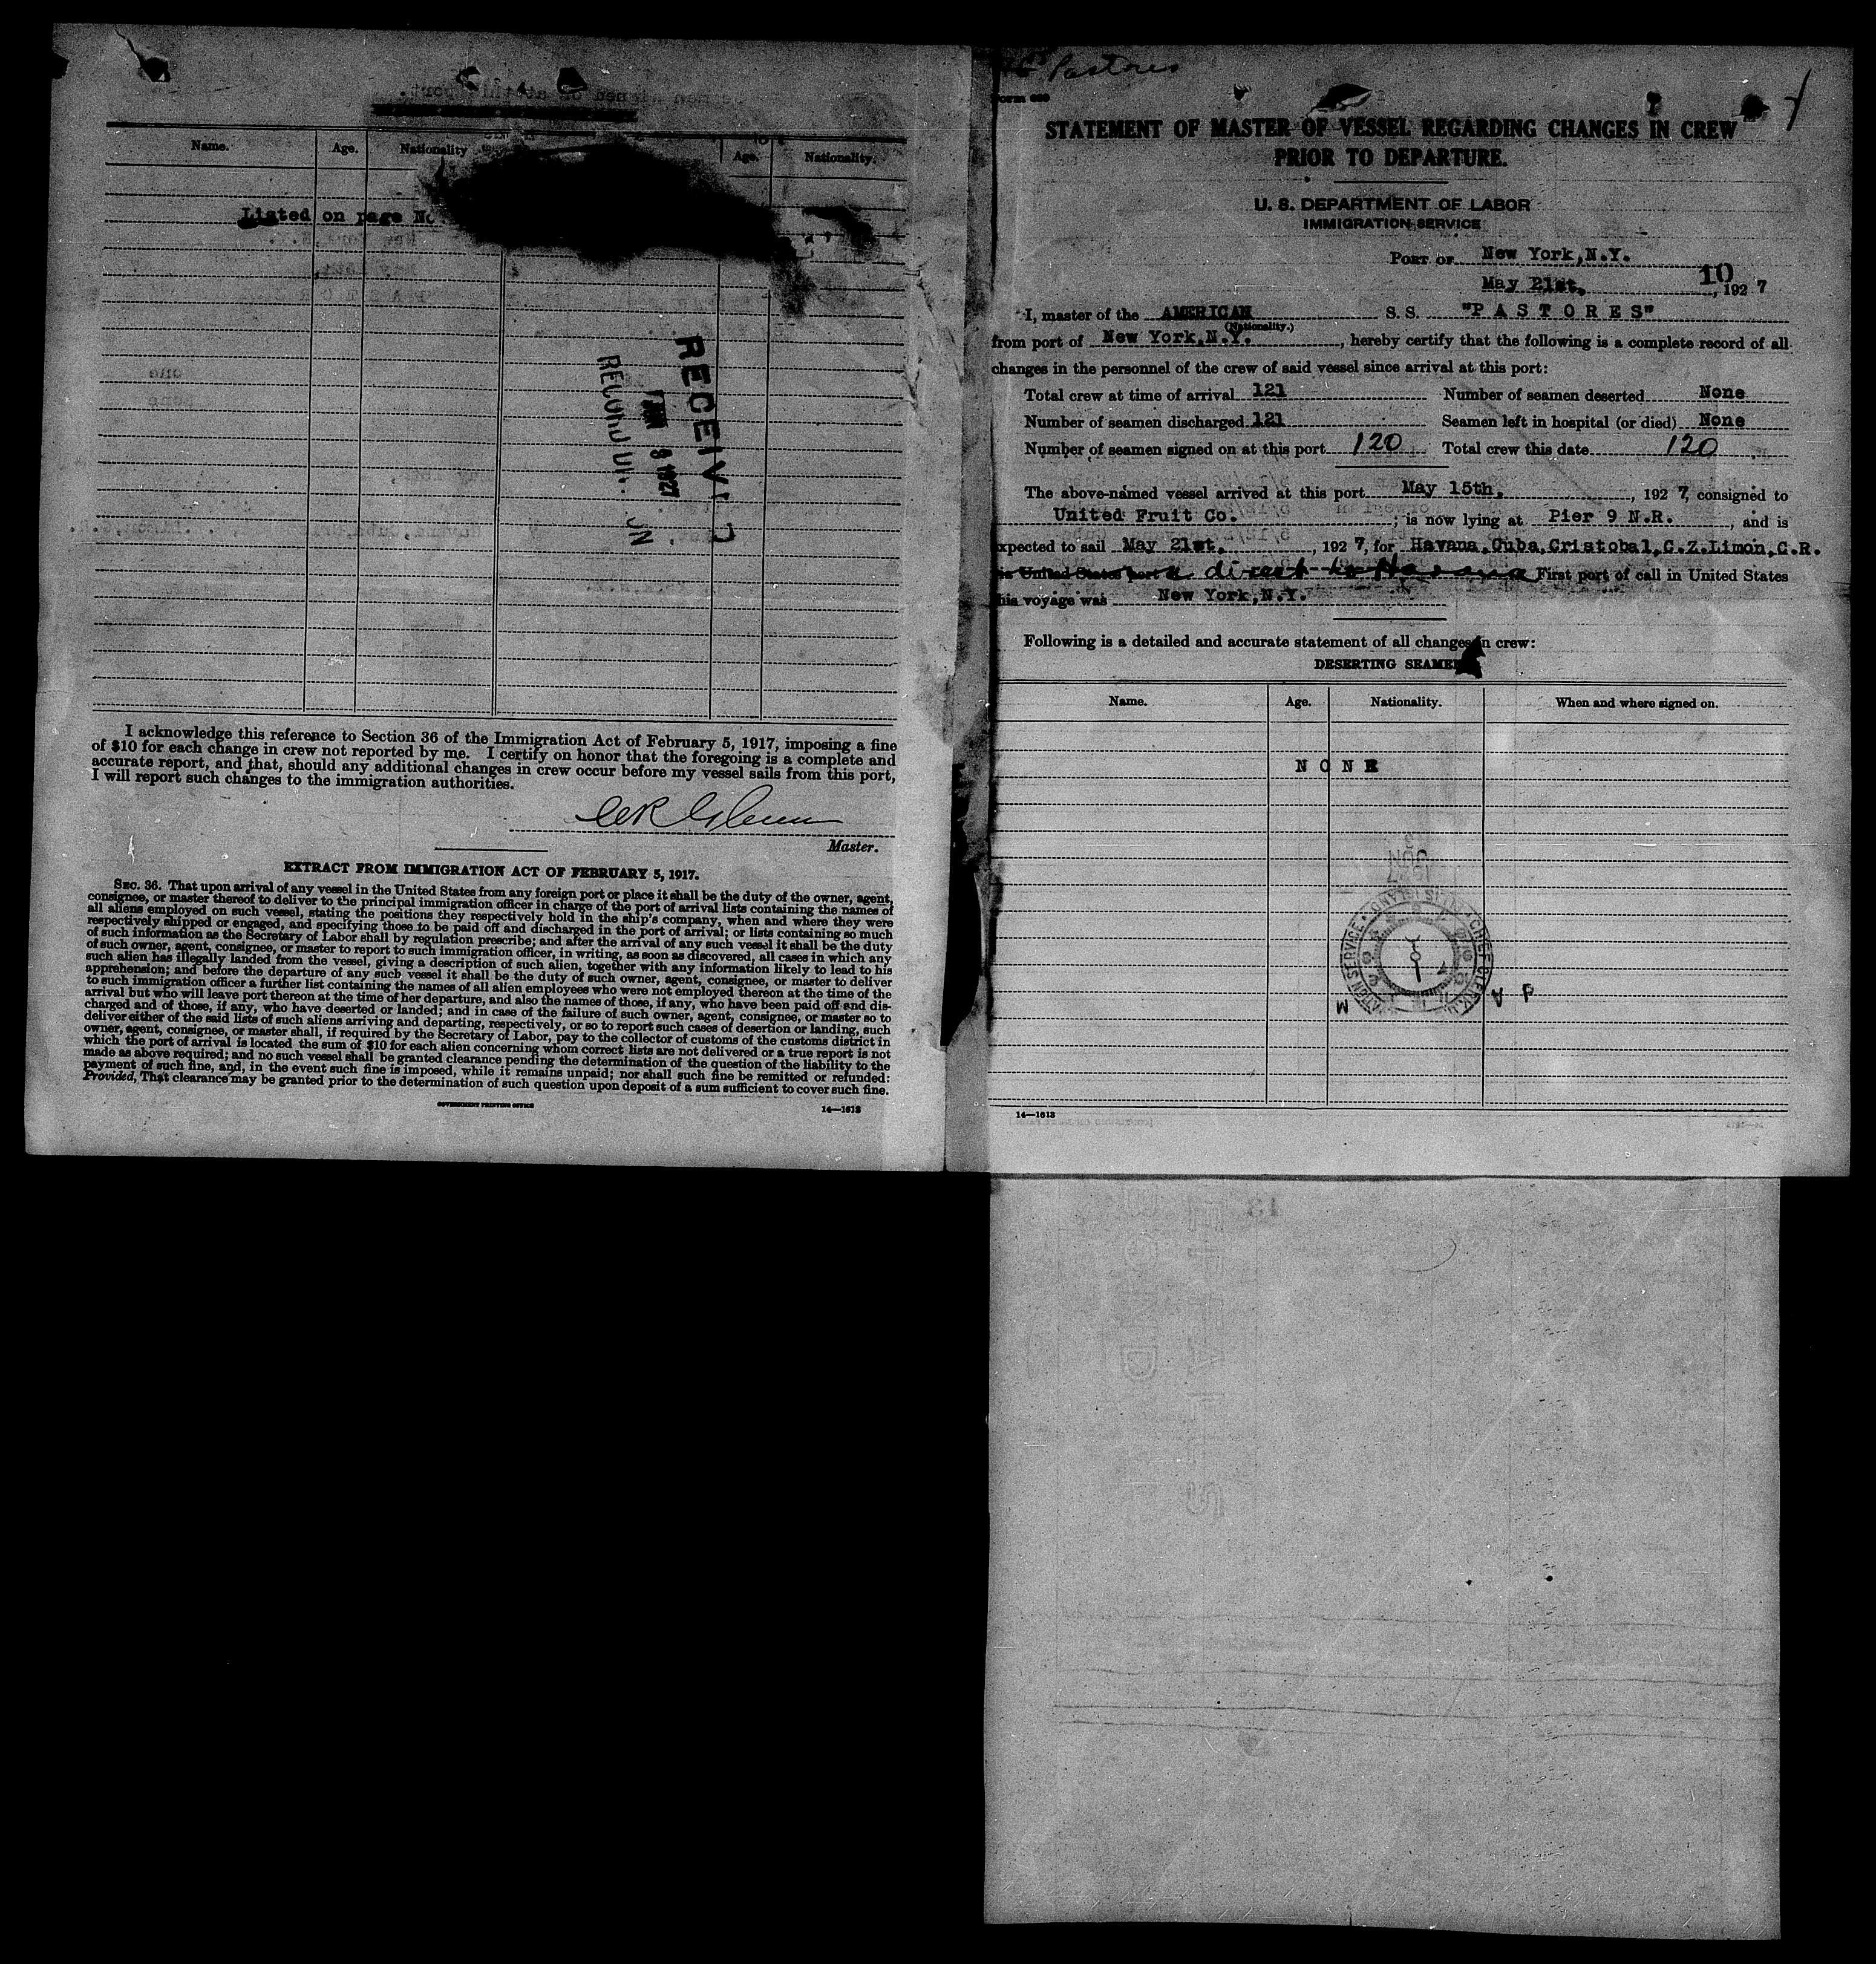 Name. Age. Nationality Age. Nationality.
Listed on page No.
RECEIV
JUN 8 1927
I acknowledge this reference to Section 36 of the Immigration Act of February 5, 1917, imposing a fine
of $10 for each change in crew not reported by me. I certify on honor that the foregoing is a complete and
accurate report, and that, should any additional changes in crew occur before my vessel sails from this port,
I will report such changes to the immigration authorities.
Master.
EXTRACT FROM IMMIGRATION ACT OF FEBRUARY 5, 1917.
SEC. 36. That upon arrival of any vessel in the United States from any foreign port or place it shall be the duty of the owner, agent,
consignee, or master thereof to deliver to the principal immigration officer in charge of the port of arrival lists containing the names of
all aliens employed on such vessel, stating the positions they respectively hold in the ship's company, when and where they were
respectively shipped or engaged, and specifying those to be paid off and discharged in the port of arrival; or lists containing so much
of such information as the Secretary of Labor shall by regulation prescribe; and after the arrival of any such vessel it shall be the duty
of such owner, agent, consignee, or master to report to such immigration officer, in writing, as soon as discovered, all cases in which any
such alien has illegally landed from the vessel, giving a description of such alien, together with any information likely to lead to his
apprehension; and before the departure of any such vessel it shall be the duty of such owner, agent, consignee, or master to deliver
to such immigration officer a further list containing the names of all alien employees who were not employed thereon at the time of the
arrival but who will leave port thereon at the time of her departure, and also the names of those, if any, who have been paid off and dis-
charged and of those, if any, who have deserted or landed; and in case of the failure of such owner, agent, consignee, or master so to
deliver either of the said lists of such aliens arriving and departing, respectively, or so to report such cases of desertion or landing, such
owner, agent, consignee, or master shall, if required by the Secretary of Labor, pay to the collector of customs of the customs district in
which the port of arrival is located the sum of $10 for each alien concerning whom correct lists are not delivered or a true report is not
made as above required; and no such vessel shall be granted clearance pending the determination of the question of the liability to the
payment of such fine, and, in the event such fine is imposed, while it remains unpaid; nor shall such fine be remitted or refunded:
Provided, That clearance may be granted prior to the determination of such question upon deposit of a sum sufficient to cover such fine.
GOVERNMENT PRINTING OFFICE 14—1613
Pastores
Form 689
STATEMENT OF MASTER OF VESSEL REGARDING CHANGES IN CREW
PRIOR TO DEPARTURE.
U. S. DEPARTMENT OF LABOR
IMMIGRATION SERVICE
PORT OF New York,N.Y.
10
May 21st. , 192 7
I, master of the AMERICAN S. S. "P A S T O R E S"
(Nationality.)
from port of New York,N.Y. , hereby certify that the following is a complete record of all
changes in the personnel of the crew of said vessel since arrival at this port:
Total crew at time of arrival 121 Number of seamen deserted None
Number of seamen discharged 121 Seamen left in hospital (or died) None
Number of seamen signed on at this port 120 Total crew this date 120
The above-named vessel arrived at this port May 15th, , 192 7, consigned to
United Fruit Co. ; is now lying at Pier 9 N.R. , and is
expected to sail May 21st, , 192 7, for Havana,Cuba,Cristobal,C.Z.Limon,C.R.
via United States port direct to Havana First port of call in United States
this voyage was New York,N.Y.
Following is a detailed and accurate statement of all changes in crew:
DESERTING SEAMEN
Name. Age. Nationality. When and where signed on.
N O N E
14—1613